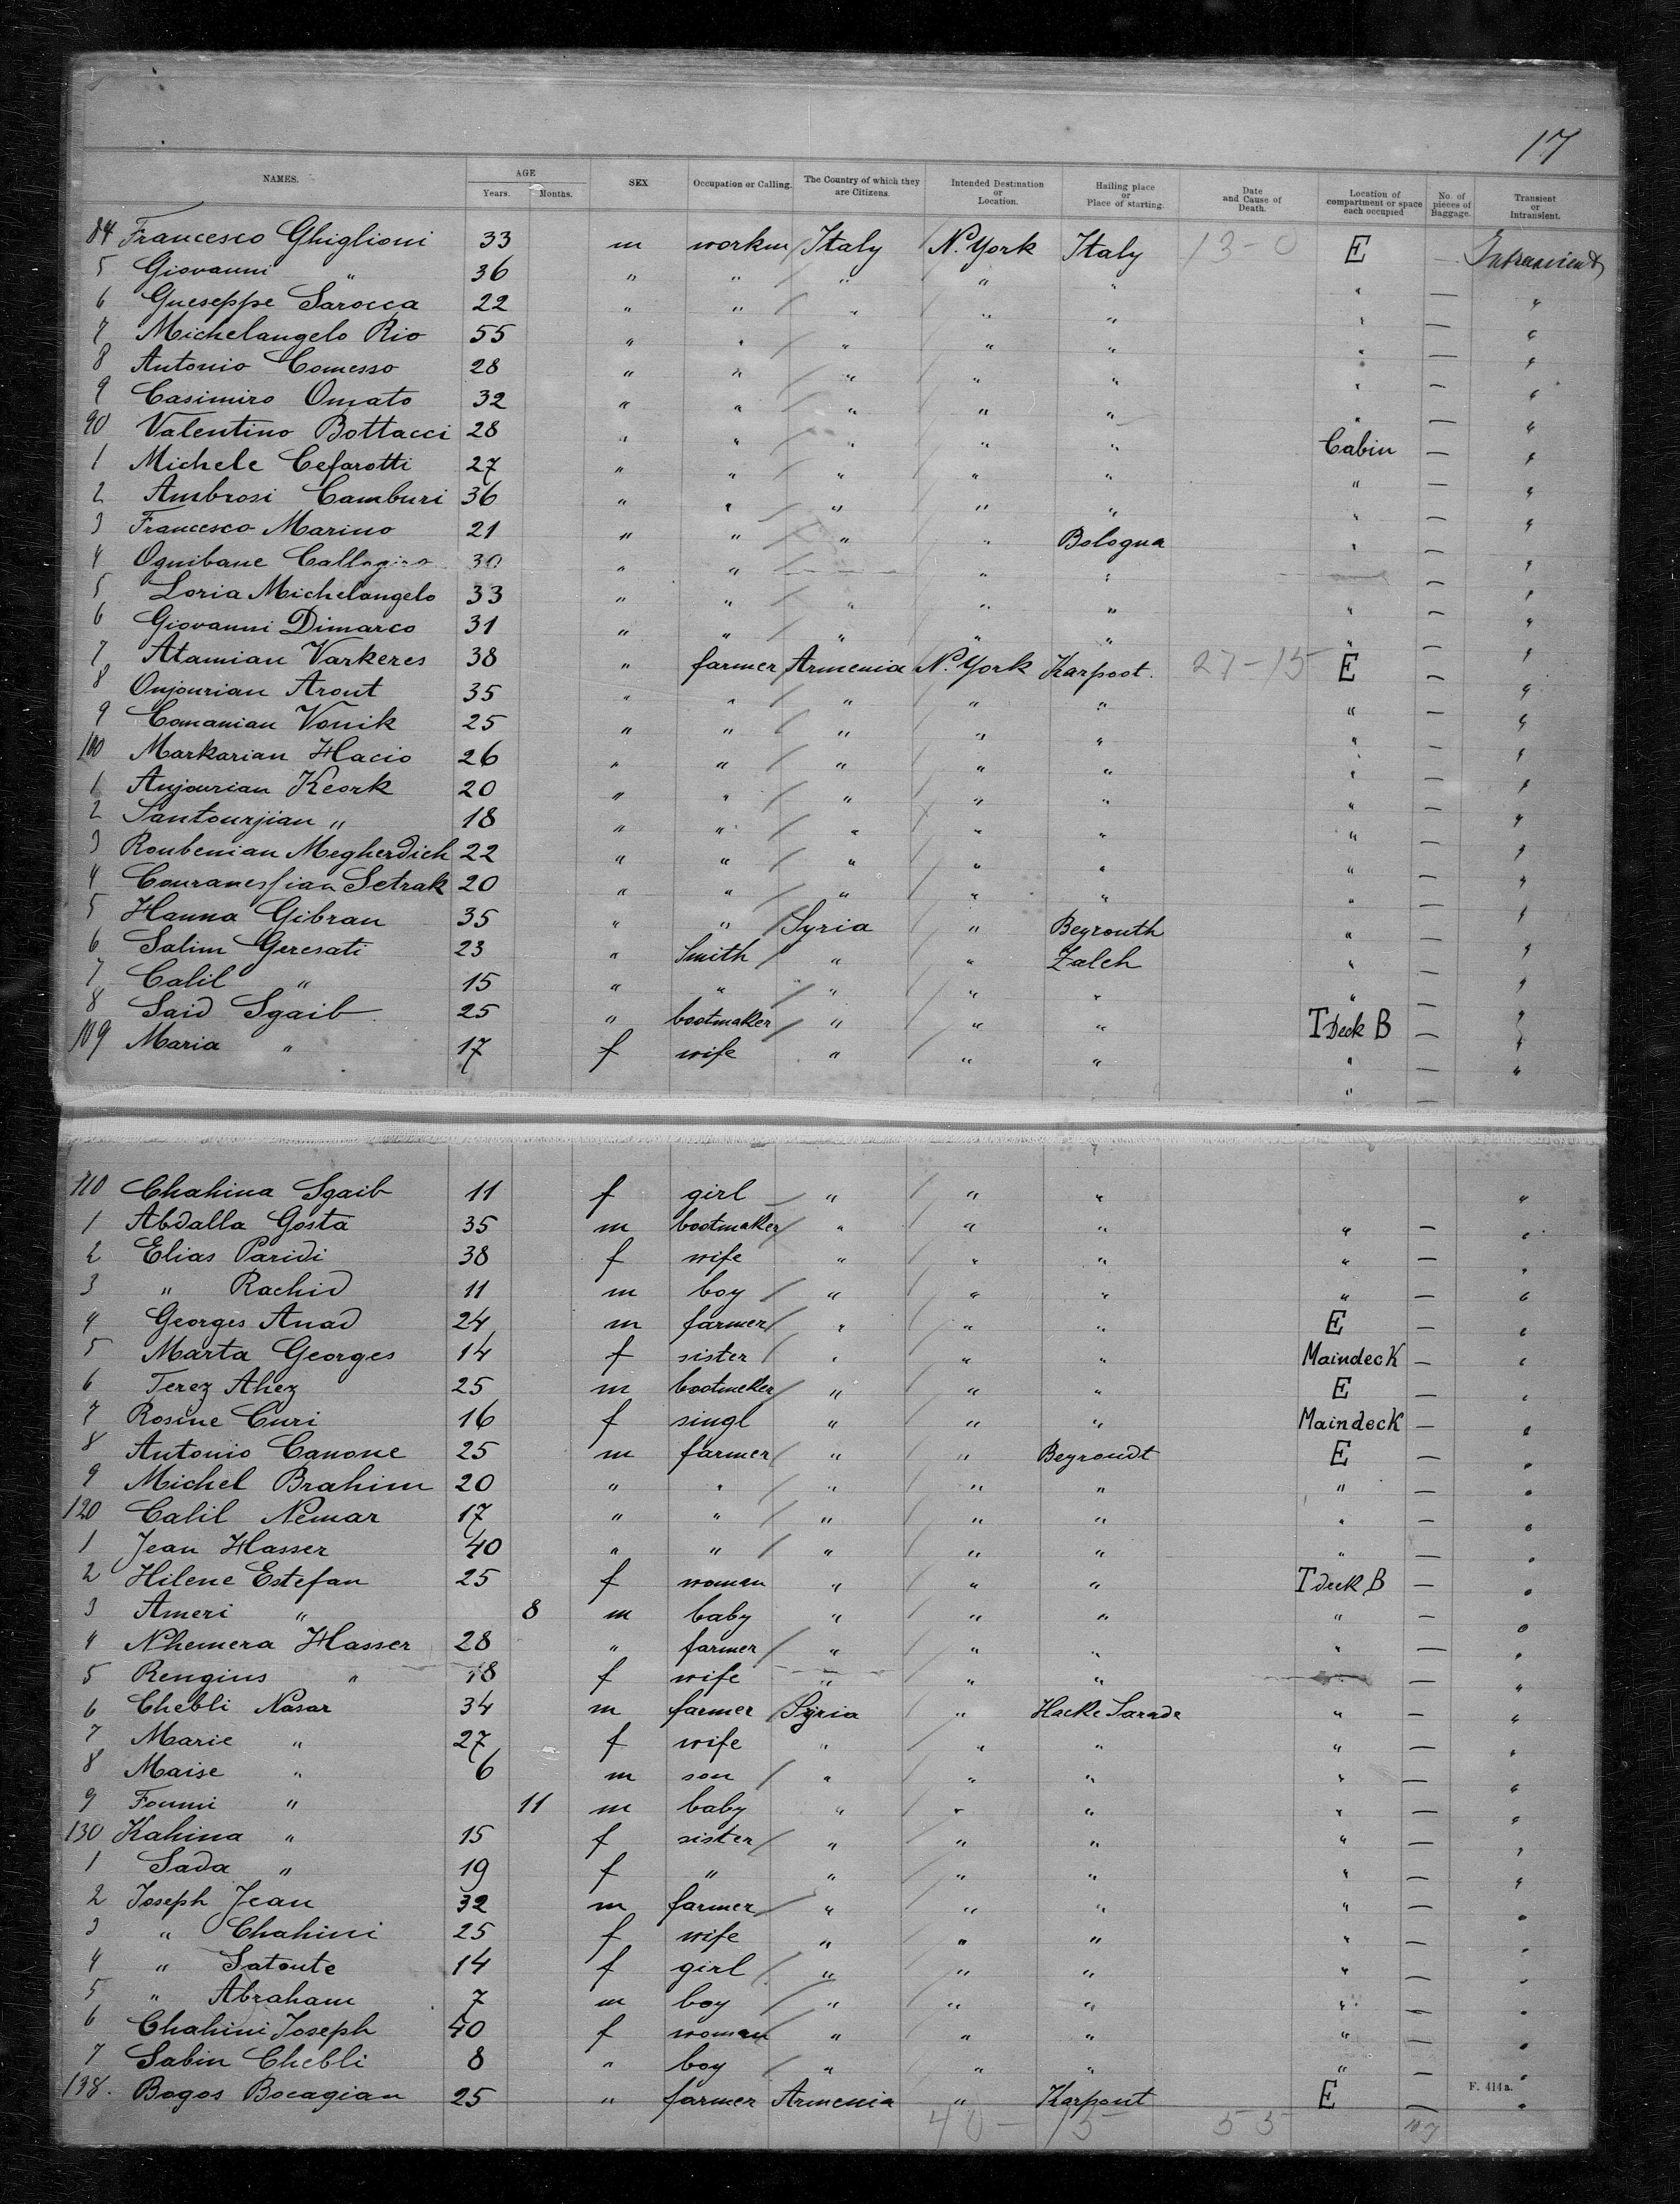 17
NAMES. AGE Years. Months. SEX Occupation or Calling. The Country of which they are Citizens. Intended Destination or Location. Hailing place or Place of starting. Date and Cause of Death. Location of compartment or space each occupied No. of pieces of Baggage. Transient or Intransient.
84 Francesco Ghiglioni 33 m workm Italy N. York Italy 13-0 E — Intransient
5 Giovanni " 36 " " " " " " — "
6 Gueseppe Sarocca 22 " " " " " " — "
7 Michelangelo Rio 55 " " " " " " — "
8 Antonio Comesso 28 " " " " " " — "
9 Casimiro Omato 32 " " " " " " — "
90 Valentino Bottacci 28 " " " " " Cabin — "
1 Michele Cefarotti 27 " " " " " " — "
2 Ambrosi Camburi 36 " " " " " " — "
3 Francesco Marino 21 " " " " Bologna " — "
4 Ognibane 30 " " " " — "
5 Loria Michelangelo 33 " " " " " " — "
6 Giovanni Dimarco 31 " " " " " " — "
7 Atamian Varkeres 38 " farmer Armenia N. York Karpoot. 27-15 E — "
8 Onjourian Arout 35 " " " " " " — "
9 Comanian Vonik 25 " " " " " " — "
100 Markarian Hacio 26 " " " " " " — "
1 Anjourian Keork 20 " " " " " " — "
2 Santourjian " 18 " " " " " " — "
3 Roubenian Megherdich 22 " " " " " " — "
4 Couranessian Setrak 20 " " " " " " — "
5 Hanna Gibran 35 " " Syria " Beyrouth " — "
6 Salim Geresati 23 " Smith " " Zaleh " — "
7 Calil " 15 " " " " " " — "
8 Said Sgaib 25 " bootmaker " " " T Deck B — "
109 Maria " 17 f wife " " " " — "
110 Chahina Sgaib 11 f girl " " " " — "
1 Abdalla Gosta 35 m bootmaker " " " " — "
2 Elias Paridi 38 f wife " " " " — "
3 " Rachid 11 m boy " " " " — "
4 Georges Anad 24 m farmer " " " E — "
5 Marta Georges 14 f sister " " " Maindeck — "
6 Terez Ahez 25 m bootmeker " " " E — "
7 Rosine Curi 16 f singl " " " Maindeck — "
8 Antonio Canone 25 m farmer " " Beyroudt E — "
9 Michel Brahim 20 " " " " " " — "
120 Calil Nemar 17 " " " " " " — "
1 Jean Hasser 40 " " " " " " — "
2 Hilene Estefan 25 f woman " " " T deck B — "
3 Ameri " 8 m baby " " " " — "
4 Nhemera Hasser 28 " farmer " " " " — "
5 Rengius " 18 f wife " " " — "
6 Chebli Nasar 34 m farmer Syria " Hacke Sarade " — "
7 Marie " 27 f wife " " " " — "
8 Maise " 6 m son " " " " — "
9 Foumi " 11 m baby " " " " — "
130 Kahina " 15 f sister " " " " — "
1 Sada " 19 f " " " " " — "
2 Joseph Jean 32 m farmer " " " " — "
3 " Chahini 25 f wife " " " " — "
4 " Satoute 14 f girl " " " " — "
5 " Abraham 7 m boy " " " " — "
6 Chahini Joseph 40 f woman " " " " — "
7 Sabin Chebli 8 " boy " " " " — "
138. Bogos Bocagian 25 " farmer Armenia " Karpout E — "
F. 414 a.
40-15 55